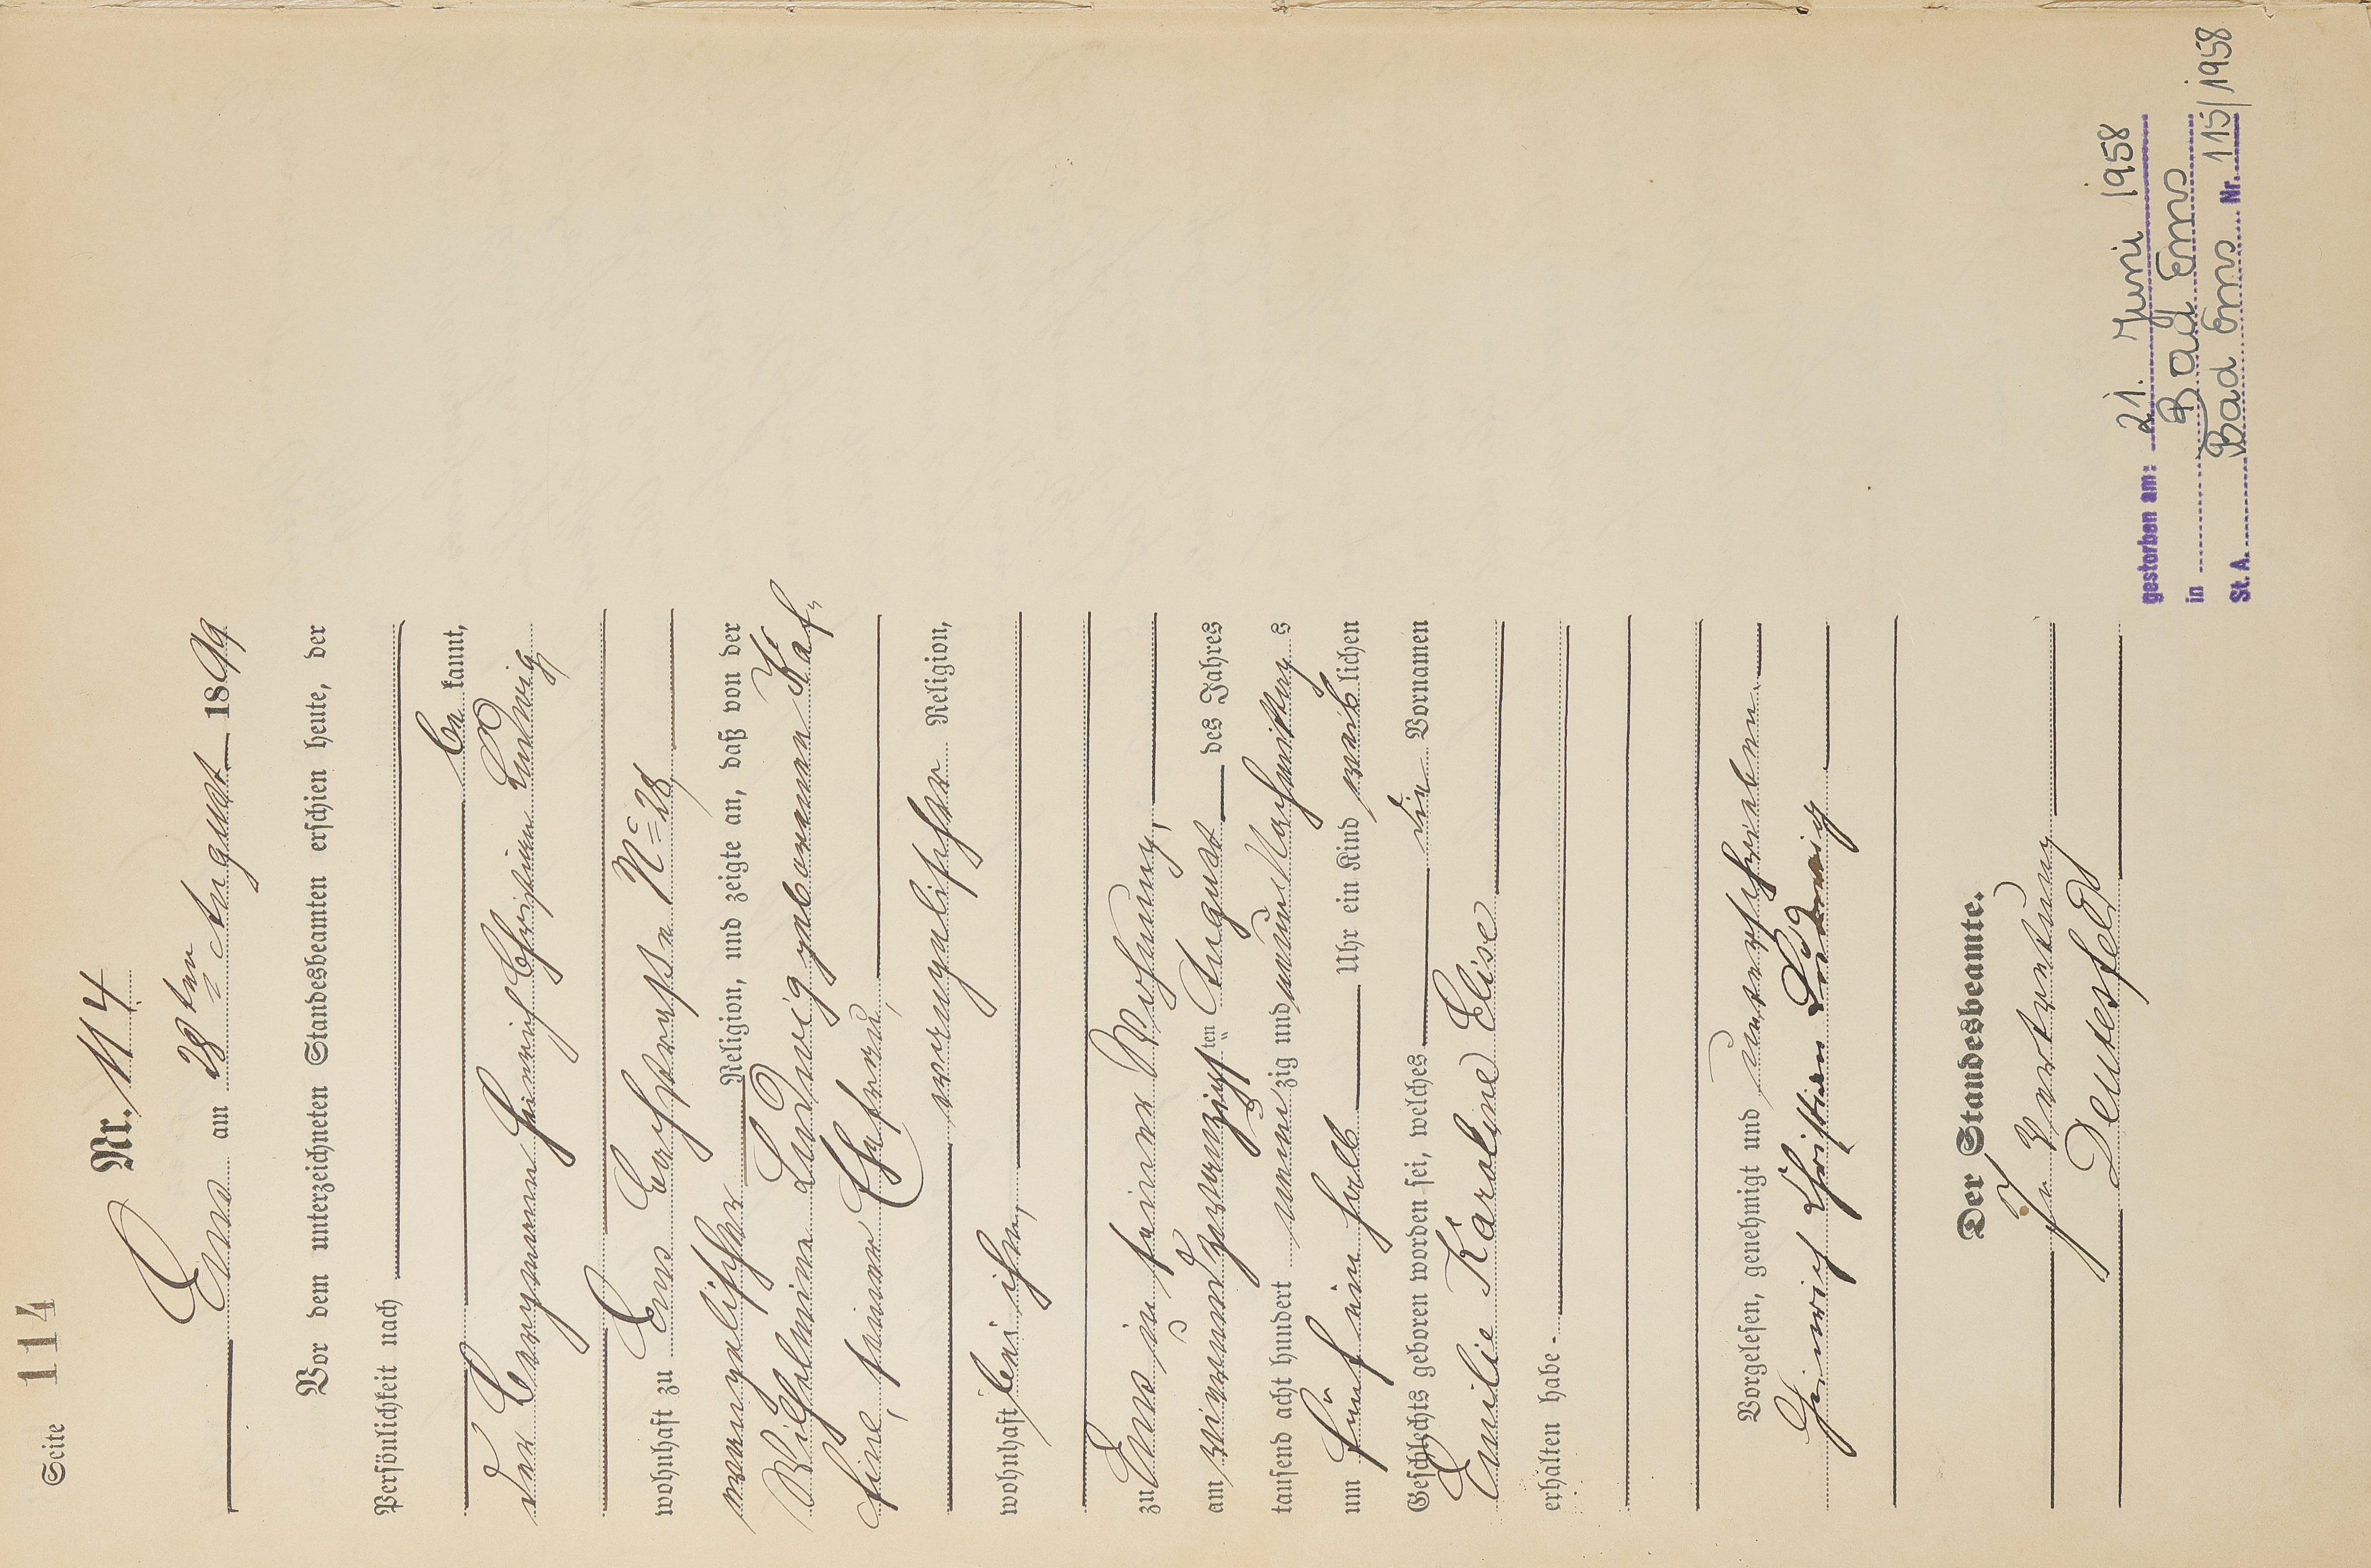 Seite 114
Nr. 114
Ems am 28ten August 1899
Vor dem unterzeichneten Standesbeamten erschien heute, der
Persönlichkeit nach
be kannt,
der Bergmann Heinrich Christian Ludwig
wohnhaft zu Ems Bachstraße No 28,
evangelischer Religion, und zeigte an, daß von der
Wilhelmine Ludwig geborenen
seiner Ehefrau,
evangelischer Religion,
wohnhaft bei ihm,
zu Ems in seiner Wohnung,
am zwanzigsten August des Jahres
tausend acht hundert neunzig und neun Nachmittags
um fünf ein halb Uhr ein Kind weiblichen
Geschlechts geboren worden sei, welches die Vornamen
Emilie Karoline Elise
erhalten habe.
Vorgelesen, genehmigt und unterschrieben
Heinrich Christian Ludwig
Der Standesbeamte.
In Vertretung
Deutesfeld
gestorben am: 21. Juni 1958
in Bad Ems
St. A. Bad Ems Nr. 115/1958